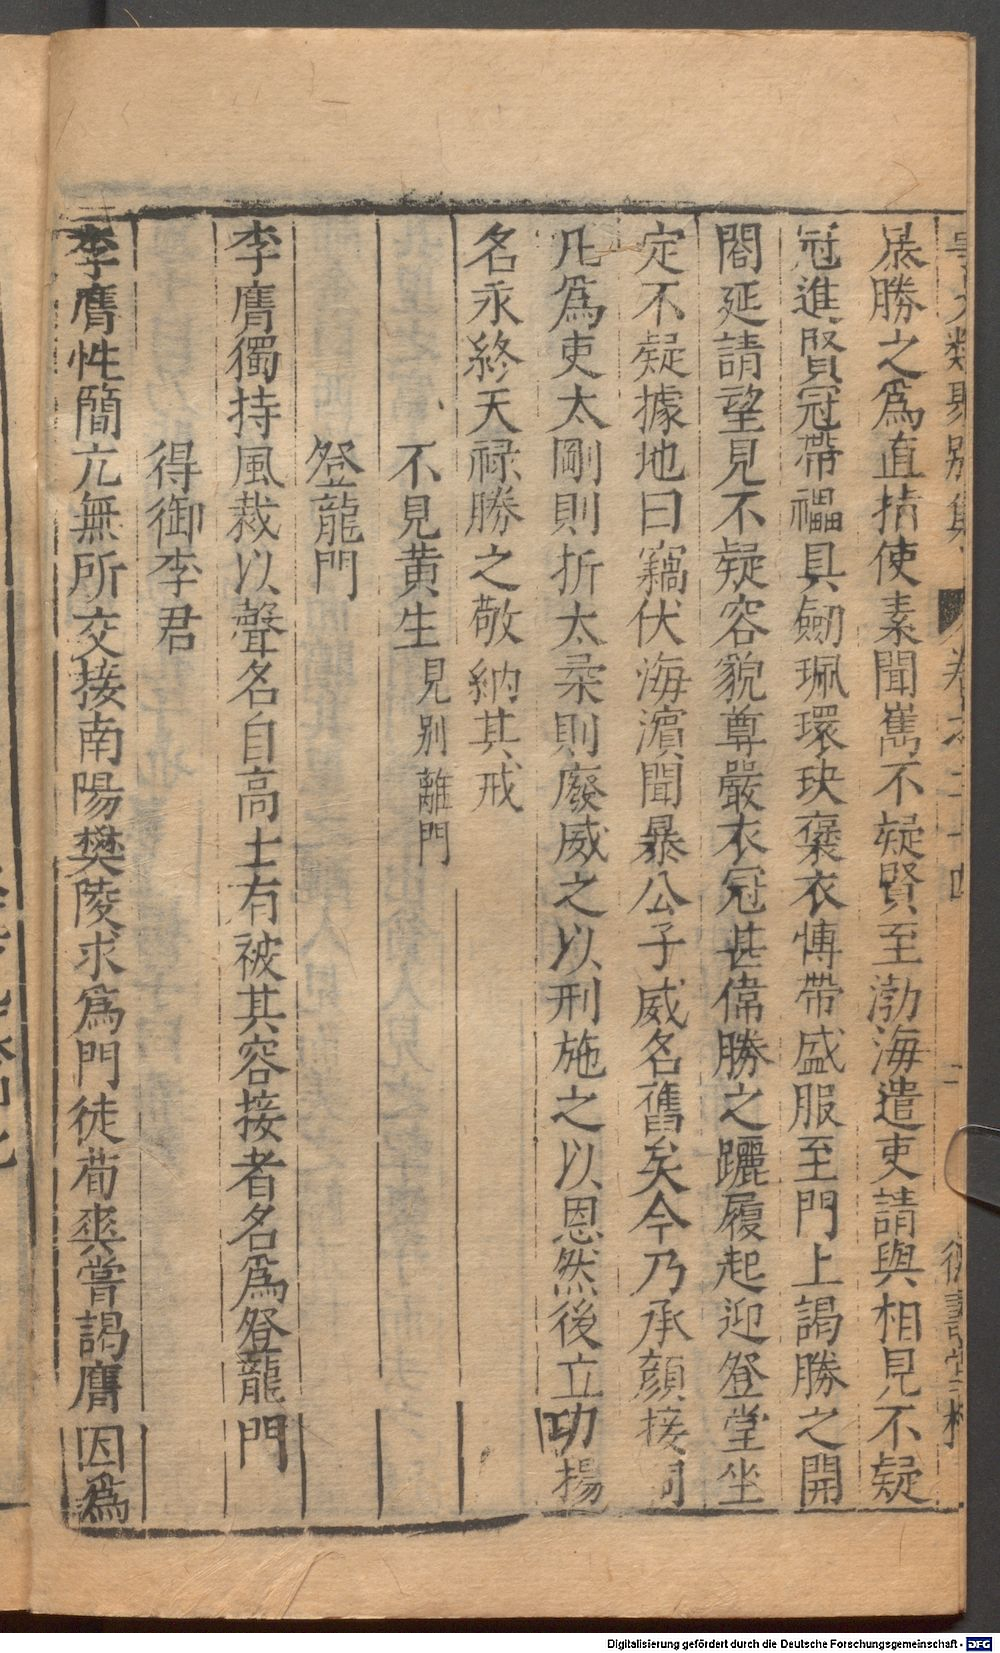 暴勝之爲直指使素聞雋不疑賢至渤海遣吏請與相見不疑
冠進賢冠帶櫑具劒珮環玦褒衣慱帶盛服至門上謁勝之開
閤延請望見不疑容貌尊嚴衣冠甚偉勝之躧履起迎登堂坐
定不疑據地曰竊伏海濵聞暴公子威名舊矣今乃承顔接詞
凡爲吏太剛則折太柔則廢威之以刑施之以恩然後立功揚
名永終天禄勝之敬納其戒
不見黄生見別離門
登龍門
李膺獨持風裁以聲名自高士有被其容接者名爲登龍門
得御李君
李膺性簡亢無所交接南陽樊陵求爲門徒荀爽嘗謁膺因爲
Digitalisierung gefördert durch die Deutsche Forschungsgemeinschaft - DFG